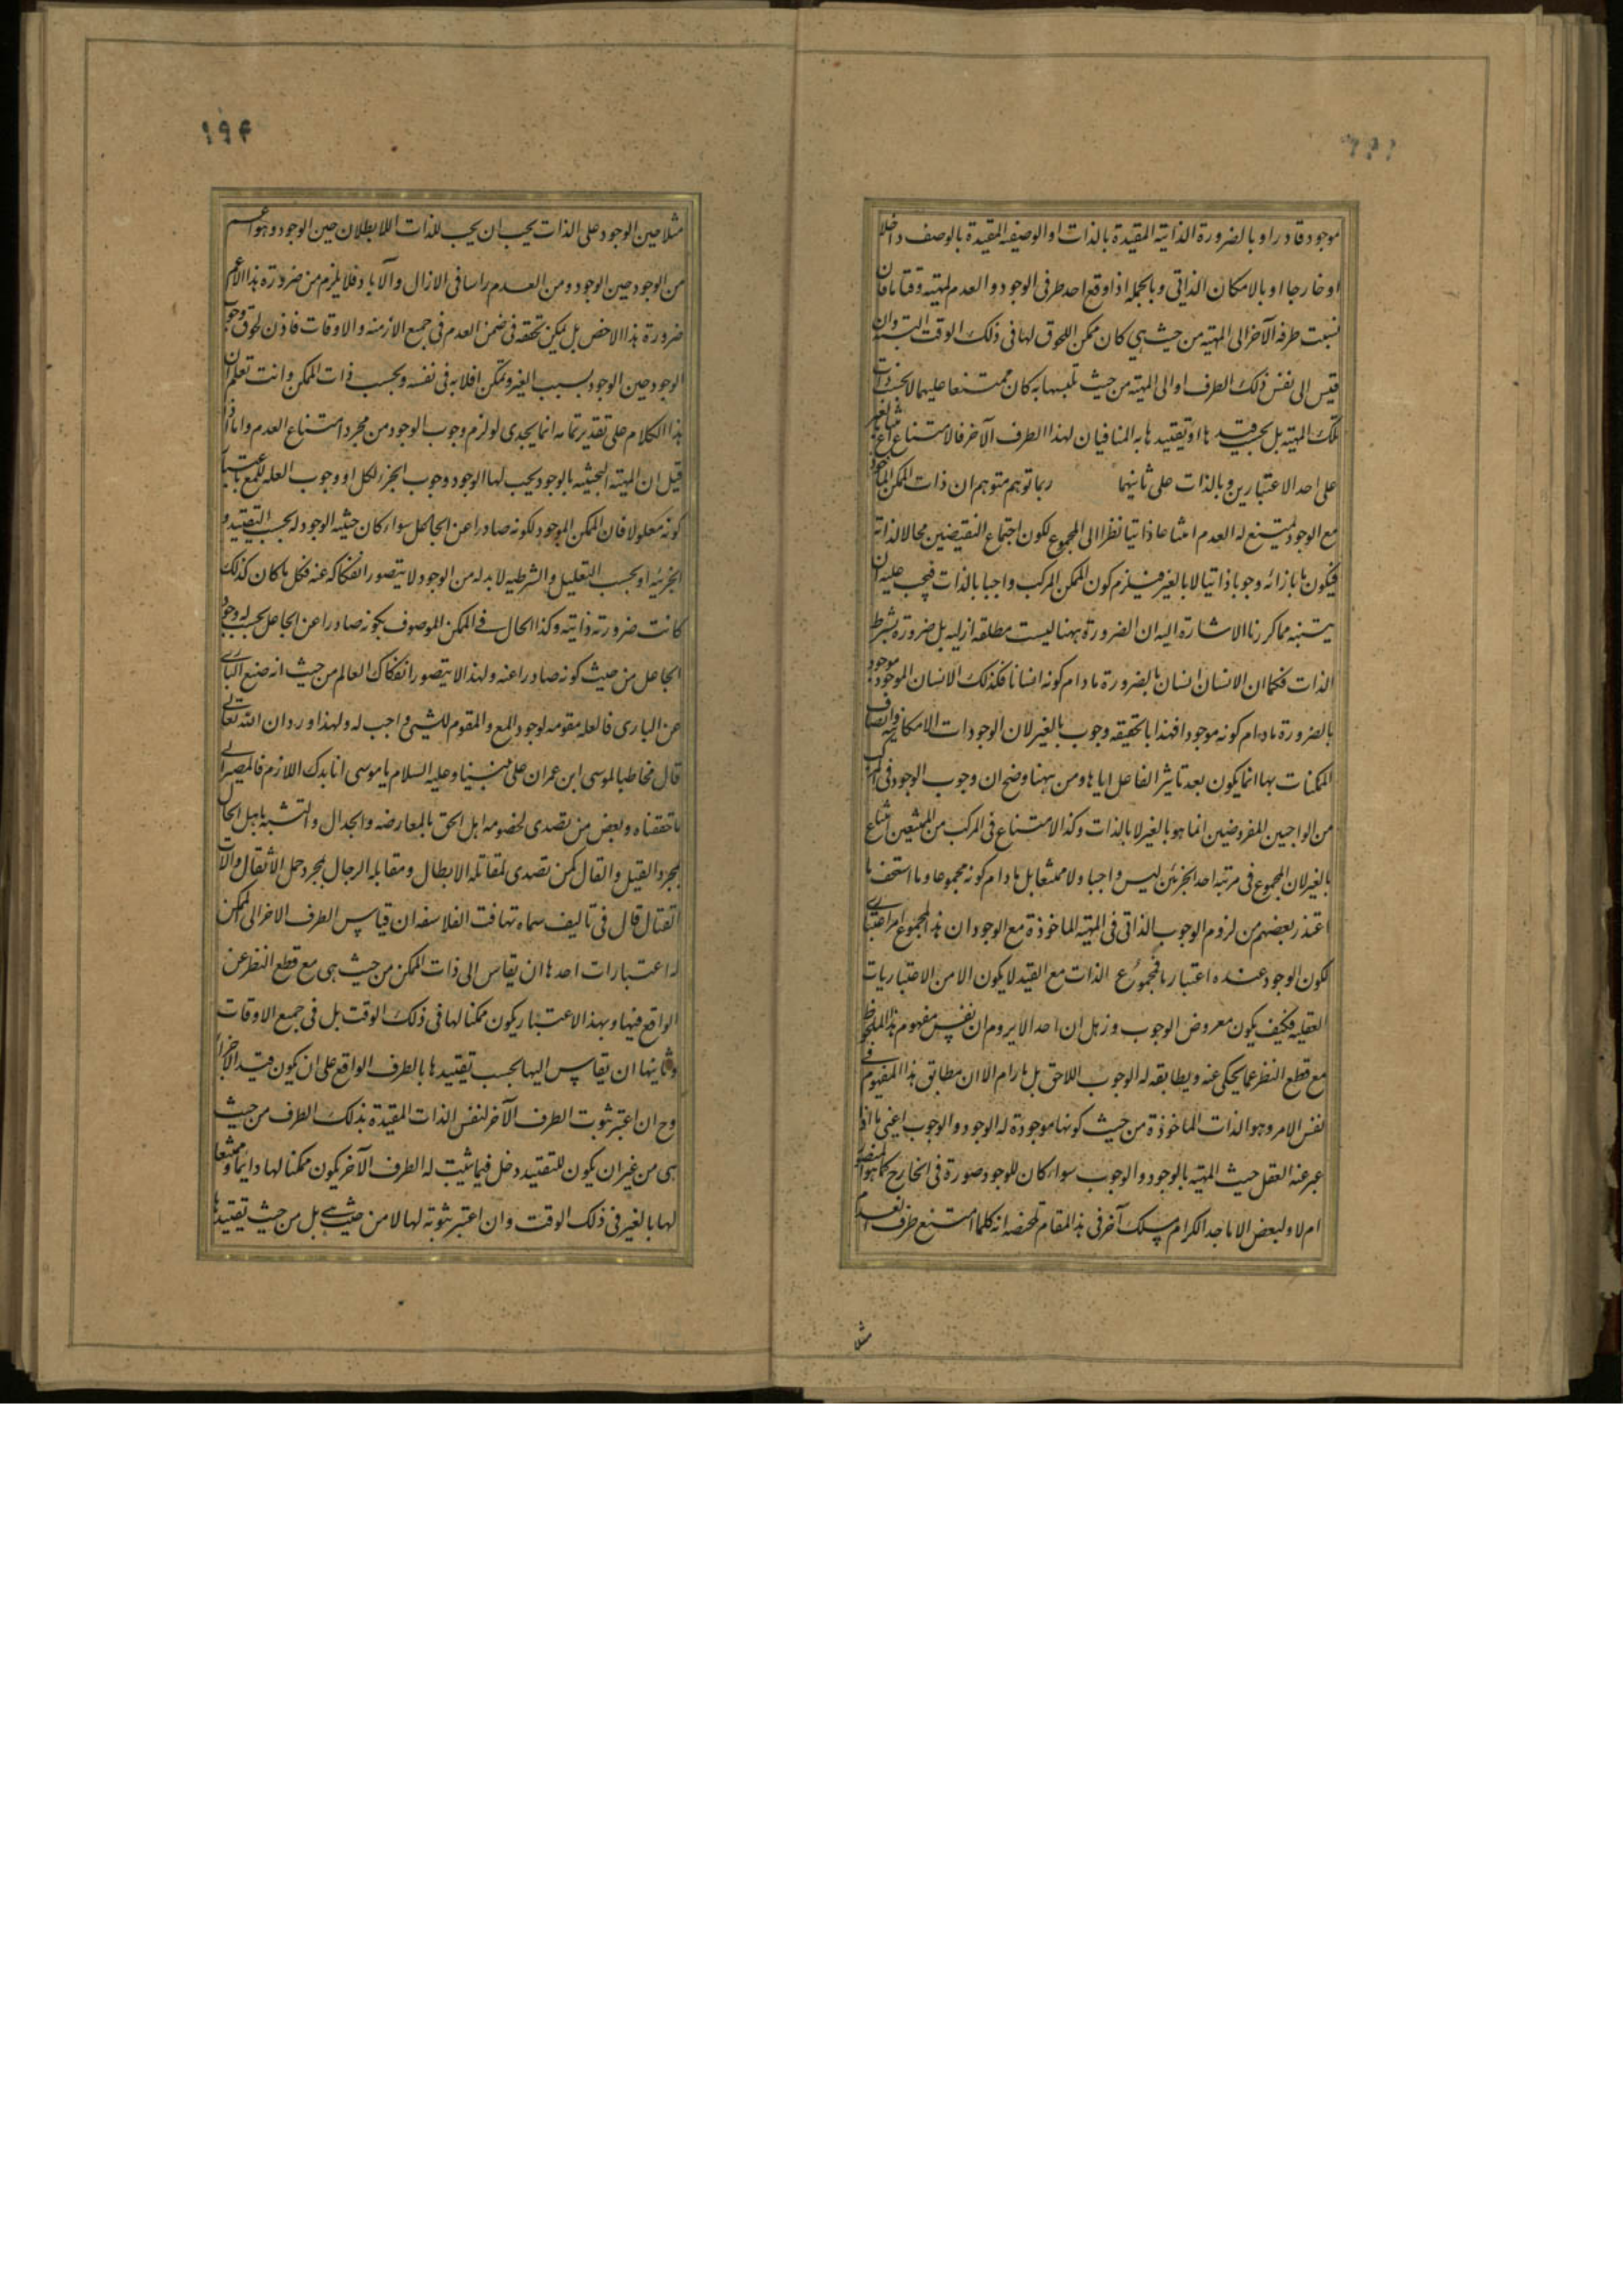 موجود قادرا و بالضرورة الذاتية المقيدة بالذات او الوصفيه المقيدة بالوصف داخلا
او خارجا او بالامكان الذاتي وبالجملة اذا وقع احد طرفي الوجود و العدم لمهية وقتا ما فان
نسبت طرفه الآخر الى المهية من حيث هي كان ممكن اللحوق لها في ذلك الوقت البتة وان
قيس الى نفس ذلك الطرف او الى المهية من حيث تلبسها به كان ممتنعا عليهما لا بحسب ذات
تلك المهية بل بحسب قيدها او تقييدها به المنافيان لهذا الطرف الآخر فالامتناع
على احد الاعتبارين و بالذات على ثانيهما ربما توهم متوهم ان ذات الممكن الماخوذ
مع الوجود يمتنع له العدم امتناعا ذاتيا نظرا الى المجموع لكون اجتماع النقيضين محالا لذاته
فيكون ما بازائه وجوبا ذاتيا لا بالغير فيلزم كون الممكن المركب واجبا بالذات فيجب عليه ان
يتنبه مما كررنا الاشارة اليه ان الضرورة ههنا ليست مطلقه ازليه بل ضرورة بشرط
الذات فكما ان الانسان انسان بالضرورة مادام كونه انسانا فكذلك الانسان الموجود موجود
بالضرورة مادام كونه موجودا فهذا بالحقيقه وجوب بالغير لان الوجودات الامكانيه واتصاف
الممكنات بها انما يكون بعد تاثير الفاعل اياها ومن ههنا وضح ان وجوب الوجود في المركب
من الواجبين المفروضين انما هو بالغير لا بالذات وكذا الامتناع في المركب من الممتنعين امتناع
بالغير لان المجموع في مرتبه احد الجزئين ليس واجبا ولا ممتنعا بل مادام كونه مجموعا وما استخف ما
اعتذر بعضهم من لزوم الوجوب الذاتي في المهية الماخوذة مع الوجود ان هذا المجموع امر اعتباري
لكون الوجود عنده اعتباريا فمجموع الذات مع القيد لا يكون الا من الاعتباريات
العقليه فكيف يكون معروض الوجوب و ذهل ان احدا لا يروم ان نفس مفهوم هذا الملحوظ
مع قطع النظر عما يحكى عنه ويطابقه له الوجوب اللاحق بل ما رام الا ان مطابق هذا المفهوم في
نفس الامر وهو الذات الماخوذة من حيث كونها موجودة له الوجود و الوجوب اعني ما اذا
عبر عنه العقل حيث المهية بالوجود و الوجوب سواء كان للوجود صورة في الخارج كما هو المنصور
ام لا ولبعض الاماجد الكرام مسلك آخر في هذا المقام تلخصه انه كلما امتنع طرف العدم
مثلا
١٩٤
مثلا حين الوجود على الذات يجب ان يجب للذات اللابطلان حين الوجود وهو اعم
من الوجود حين الوجود ومن العدم راسا في الازال والآباد فلا يلزم من ضرورة هذا الاعم
ضرورة هذا الاخص بل يمكن تحققه في ضمن العدم في جميع الازمنه والاوقات فاذن لحوق وجوب
الوجود حين الوجود بسبب الغير و يمكن افلابه في نفسه وبحسب ذات الممكن وانت تعلم ان
هذا الكلام على تقدير تمامه انما يجدى لو لزم وجوب الوجود من مجرد امتناع العدم واما اذا
قيل ان المهية المحيثيه بالوجود يجب لها الوجود وجوب الجزء للكل او وجوب العله للمع باعتبار
كونه معلولا فان الممكن الموجود لكونه صادرا عن الجاعل سواء كان حيثيه الوجود له بحسب التقييد و
الجزئيه او بحسب التعليل والشرطيه لابد له من الوجود ولا يتصور انفكاكه عنه فكل ما كان كذلك
كانت ضرورته ذاتيه وكذا الحال في الممكن الموصوف بكونه صادرا عن الجاعل يجب له وجود
الجاعل من حيث كونه صادرا عنه ولهذا لا يتصور انفكاك العالم من حيث انه صنع الباري
عن الباري فالعله مقومه لوجود المع والمقوم للشيئ واجب له ولهذا ورد ان الله تعالى
قال مخاطبا لموسى ابن عمران على نبينا وعليه السلام يا موسى انا بدك اللازم فالمصير الى
ما حققناه وبعض من تصدى لخصومه اهل الحق بالمعارضه والجدال والتشبه باهل الحال
بمجرد القيل والقال كمن تصدى لمقاتلة الابطال ومقابله الرجال بمجرد حمل الاثقال وآلات
القتال قال في تاليف سماه تهافت الفلاسفه ان قياس الطرف الاخر الى الممكن
له اعتبارات احدها ان يقاس الى ذات الممكن من حيث هى مع قطع النظر عن
الواقع فيها وبهذا الاعتبار يكون ممكنا لها في ذلك الوقت بل في جميع الاوقات
وثانيها ان يقاس اليها بحسب تقييدها بالطرف الواقع على ان يكون قيدا لا جزءا
وح ان اعتبر ثبوت الطرف الآخر لنفس الذات المقيدة بذلك الطرف من حيث
هى من غير ان يكون للتقييد دخل فيما يثبت له الطرف الآخر يكون ممكنا لها دايما و ممتنعا
لها بالغير في ذلك الوقت وان اعتبر ثبوته لها لا من حيث هى بل من حيث تقييدها